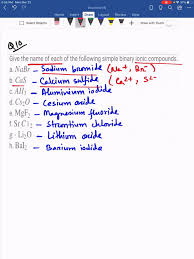 Q10
Give the name of each of the following simple binary ionic compounds.
a. NaBr – Sodium bromide (Na+, Br-)
b. CaS – Calcium sulfide (Ca2+, S2-
c. AlI3 – Aluminium iodide
d. Cs2O – Cesium oxide
e. MgF2 – Magnesium fluoride
f. SrCl2 – Strontium chloride
g. Li2O – Lithium oxide
h. BaI2 – Barium iodide